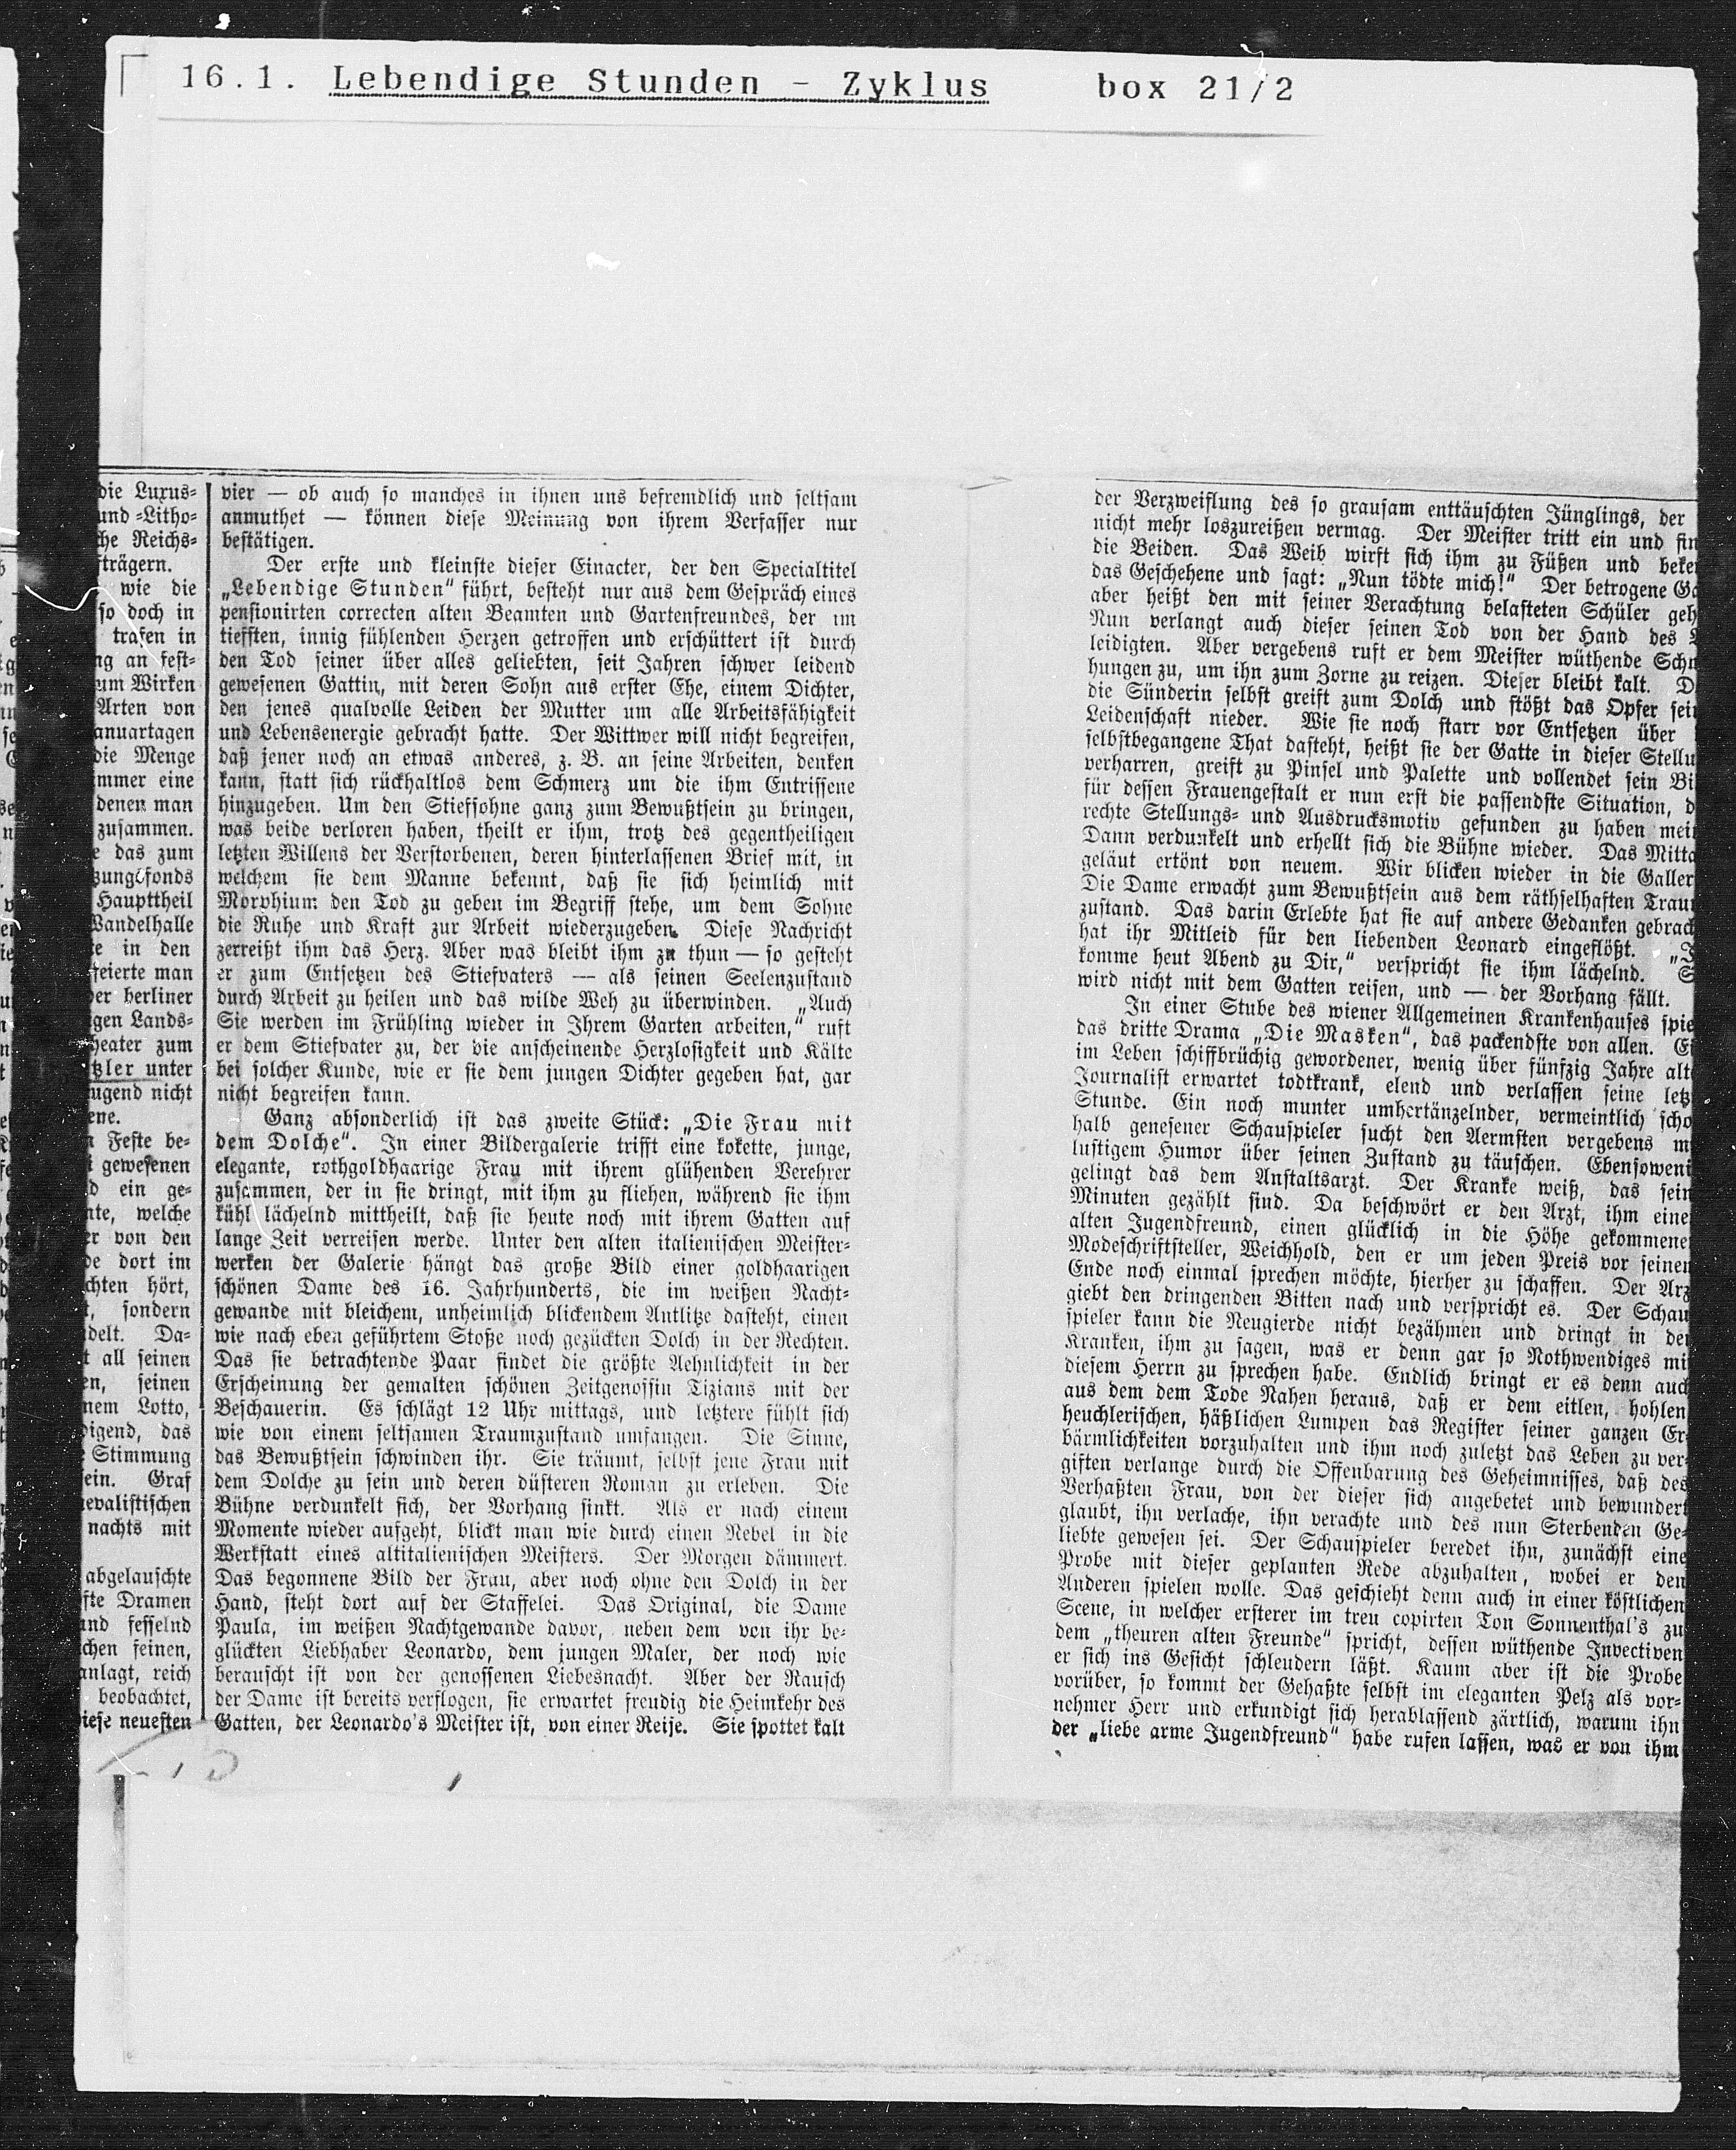 16.1. Lebendige Stunden - Zyklus box 21/2
die Luxus-
und -Litho-
che Reichs-
trägern.
wie die
so doch in
trafen in
ng an fest-
um Wirken
Arten von
anuartagen
die Menge
immer eine
denen man
zusammen.
das zum
zungsfonds
Haupttheil
Wandelhalle
in den
feierte man
er berliner
gen Lands-
heater zum
tzler unter
tugend nicht
ene.
Feste be-
gewesenen
ein ge-
nte, welche
er von den
de dort im
chten hört,
sondern
delt. Da-
t all seinen
en, seinen
nem Lotto,
digend, das
Stimmung
ein. Graf
nevalistischen
nachts mit
abgelauschte
fte Dramen
und fesselnd
chen feinen,
anlagt, reich
beobachtet,
diese neuesten
vier — ob auch so manches in ihnen uns befremdlich und seltsam
anmuthet — können diese Meinung von ihrem Verfasser nur
bestätigen.
Der erste und kleinste dieser Einacter, der den Specialtitel
„Lebendige Stunden“ führt, besteht nur aus dem Gespräch eines
pensionirten correcten alten Beamten und Gartenfreundes, der im
tiefsten, innig fühlenden Herzen getroffen und erschüttert ist durch
den Tod seiner über alles geliebten, seit Jahren schwer leidend
gewesenen Gattin, mit deren Sohn aus erster Ehe, einem Dichter,
den jenes qualvolle Leiden der Mutter um alle Arbeitsfähigkeit
und Lebensenergie gebracht hatte. Der Wittwer will nicht begreifen,
daß jener noch an etwas anderes, z. B. an seine Arbeiten, denken
kann, statt sich rückhaltlos dem Schmerz um die ihm Entrissene
hinzugeben. Um den Stiefsohne ganz zum Bewußtsein zu bringen,
was beide verloren haben, theilt er ihm, trotz des gegentheiligen
letzten Willens der Verstorbenen, deren hinterlassenen Brief mit, in
welchem sie dem Manne bekennt, daß sie sich heimlich mit
Morphium den Tod zu geben im Begriff stehe, um dem Sohne
die Ruhe und Kraft zur Arbeit wiederzugeben. Diese Nachricht
zerreißt ihm das Herz. Aber was bleibt ihm zu thun — so gesteht
er zum Entsetzen des Stiefvaters — als seinen Seelenzustand
durch Arbeit zu heilen und das wilde Weh zu überwinden. „Auch
Sie werden im Frühling wieder in Ihrem Garten arbeiten,“ ruft
er dem Stiefvater zu, der die anscheinende Herzlosigkeit und Kälte
bei solcher Kunde, wie er sie dem jungen Dichter gegeben hat, gar
nicht begreifen kann.
Ganz absonderlich ist das zweite Stück: „Die Frau mit
dem Dolche“. In einer Bildergalerie trifft eine kokette, junge,
elegante, rothgoldhaarige Frau mit ihrem glühenden Verehrer
zusammen, der in sie dringt, mit ihm zu fliehen, während sie ihm
kühl lächelnd mittheilt, daß sie heute noch mit ihrem Gatten auf
lange Zeit verreisen werde. Unter den alten italienischen Meister-
werken der Galerie hängt das große Bild einer goldhaarigen
schönen Dame des 16. Jahrhunderts, die im weißen Nacht-
gewande mit bleichem, unheimlich blickendem Antlitze dasteht, einen
wie nach eben geführtem Stoße noch gezückten Dolch in der Rechten.
Das sie betrachtende Paar findet die größte Aehnlichkeit in der
Erscheinung der gemalten schönen Zeitgenossin Tizians mit der
Beschauerin. Es schlägt 12 Uhr mittags, und letztere fühlt sich
wie von einem seltsamen Traumzustand umfangen. Die Sinne,
das Bewußtsein schwinden ihr. Sie träumt, selbst jene Frau mit
dem Dolche zu sein und deren düsteren Roman zu erleben. Die
Bühne verdunkelt sich, der Vorhang sinkt. Als er nach einem
Momente wieder aufgeht, blickt man wie durch einen Nebel in die
Werkstatt eines altitalienischen Meisters. Der Morgen dämmert.
Das begonnene Bild der Frau, aber noch ohne den Dolch in der
Hand, steht dort auf der Staffelei. Das Original, die Dame
Paula, im weißen Nachtgewande davor, neben dem von ihr be-
glückten Liebhaber Leonardo, dem jungen Maler, der noch wie
berauscht ist von der genossenen Liebesnacht. Aber der Rausch
der Dame ist bereits verflogen, sie erwartet freudig die Heimkehr des
Gatten, der Leonardo's Meister ist, von einer Reise. Sie spottet kalt
der Verzweiflung des so grausam enttäuschten Jünglings, der
nicht mehr loszureißen vermag. Der Meister tritt ein und fin
die Beiden. Das Weib wirft sich ihm zu Füßen und beke
das Geschehene und sagt: „Nun tödte mich!“ Der betrogene Ga
aber heißt den mit seiner Verachtung belasteten Schüler geh
Nun verlangt auch dieser seinen Tod von der Hand des
leidigten. Aber vergebens ruft er dem Meister wüthende Schm
hungen zu, um ihn zum Zorne zu reizen. Dieser bleibt kalt. D
die Sünderin selbst greift zum Dolch und stößt das Opfer sei
Leidenschaft nieder. Wie sie noch starr vor Entsetzen über
selbstbegangene That dasteht, heißt sie der Gatte in dieser Stellu
verharren, greift zu Pinsel und Palette und vollendet sein Bi
für dessen Frauengestalt er nun erst die passendste Situation, d
rechte Stellungs- und Ausdrucksmotiv gefunden zu haben mei
Dann verdunkelt und erhellt sich die Bühne wieder. Das Mitta
geläut ertönt von neuem. Wir blicken wieder in die Galler
Die Dame erwacht zum Bewußtsein aus dem räthselhaften Trau
zustand. Das darin Erlebte hat sie auf andere Gedanken gebrach
hat ihr Mitleid für den liebenden Leonard eingeflößt. „I
komme heut Abend zu Dir,“ verspricht sie ihm lächelnd. S
wird nicht mit dem Gatten reisen, und — der Vorhang fällt.
In einer Stube des wiener Allgemeinen Krankenhauses spie
das dritte Drama „Die Masken“, das packendste von allen. Ei
im Leben schiffbrüchig gewordener, wenig über fünfzig Jahre alt
Journalist erwartet todtkrank, elend und verlassen seine letz
Stunde. Ein noch munter umhertänzelnder, vermeintlich scho
halb genesener Schauspieler sucht den Aermsten vergebens m
lustigem Humor über seinen Zustand zu täuschen. Ebensoweni
gelingt das dem Anstaltsarzt. Der Kranke weiß, das sein
Minuten gezählt sind. Da beschwört er den Arzt, ihm eine
alten Jugendfreund, einen glücklich in die Höhe gekommene
Modeschriftsteller, Weichhold, den er um jeden Preis vor seinem
Ende noch einmal sprechen möchte, hierher zu schaffen. Der Arz
giebt den dringenden Bitten nach und verspricht es. Der Schau
spieler kann die Neugierde nicht bezähmen und dringt in den
Kranken, ihm zu sagen, was er denn gar so Nothwendiges mi
diesem Herrn zu sprechen habe. Endlich bringt er es denn auch
aus dem dem Tode Nahen heraus, daß er dem eitlen, hohlen
heuchlerischen, häßlichen Lumpen das Register seiner ganzen Er-
bärmlichkeiten vorzuhalten und ihm noch zuletzt das Leben zu ver-
giften verlange durch die Offenbarung des Geheimnisses, daß des
Verhaßten Frau, von der dieser sich angebetet und bewundert
glaubt, ihn verlache, ihn verachte und des nun Sterbenden Ge-
liebte gewesen sei. Der Schauspieler beredet ihn, zunächst eine
Probe mit dieser geplanten Rede abzuhalten, wobei er den
Anderen spielen wolle. Das geschieht denn auch in einer köstlichen
Scene, in welcher ersterer im treu copirten Ton Sonnenthal's zu
dem „theuren alten Freunde“ spricht, dessen wüthende Invectiven
er sich ins Gesicht schleudern läßt. Kaum aber ist die Probe
vorüber, so kommt der Gehaßte selbst im eleganten Pelz als vor-
nehmer Herr und erkundigt sich herablassend zärtlich, warum ihn
der „liebe arme Jugendfreund“ habe rufen lassen, was er von ihm